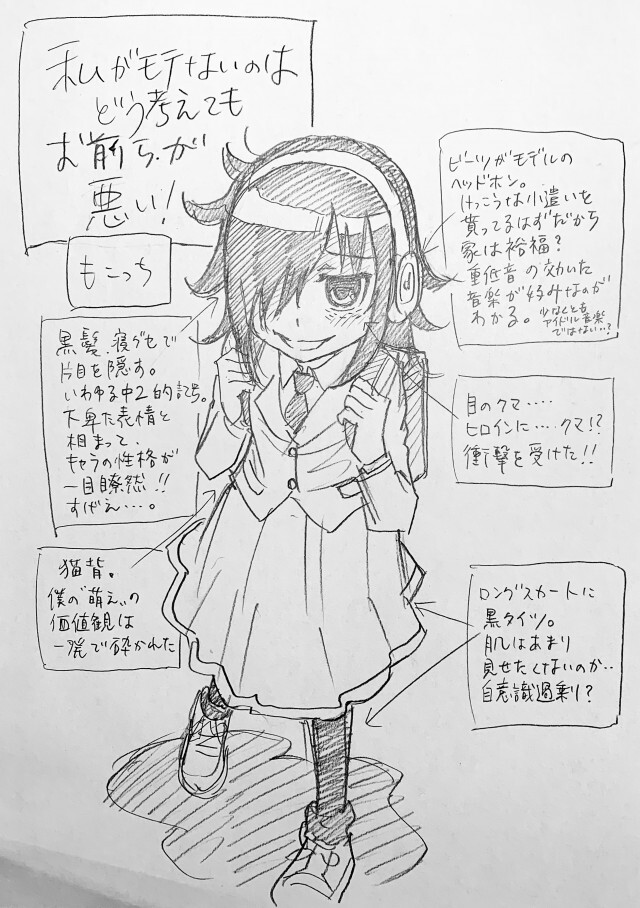 私がモテないのは
どう考えても
お前らが
悪い!
もこっち
黒髪、寝グセで
片目を隠す。
いわゆる中2的記号。
下卑た表情と
相まって、
キャラの性格が
一目瞭然!!
すげえ…。
猫背。
僕の“萌え”の
価値観は
一発で砕かれた
ビーツがモデルの
ヘッドホン。
けっこうな小遣いを
貰ってるはずだから
家は裕福?
重低音の効いた
音楽が好みなのが
わかる。
少なくとも
アイドル音楽
ではない…?
目のクマ……
ヒロインに…クマ!?
衝撃を受けた!!
ロングスカートに
黒タイツ。
肌はあまり
見せたくないのか…
自意識過剰?